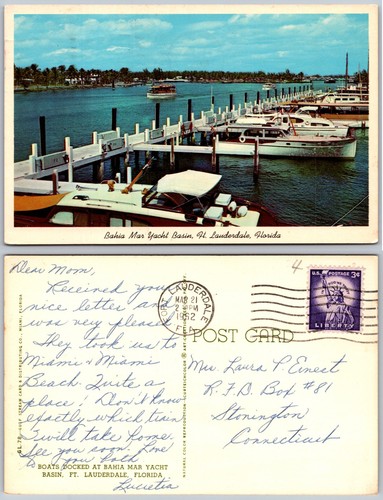 Bahia Mar Yacht Basin, Ft. Lauderdale, Florida
Dear Mom,
Received your
nice letter and
was very pleased.
They took us to
Miami & Miami
Beach. Quite a
place! Don't know
exactly which train
I will take home.
See you soon. Love
to you both
Lucretia
BOATS DOCKED AT BAHIA MAR YACHT
BASIN, FT. LAUDERDALE, FLORIDA
FORT LAUDERDALE
MAR 21
1962
FLA.
POST CARD
4
U.S. POSTAGE 3¢
LIBERTY
Mrs. Laura P. Ernest
R.F.D. Box #81
Stonington
Connecticut